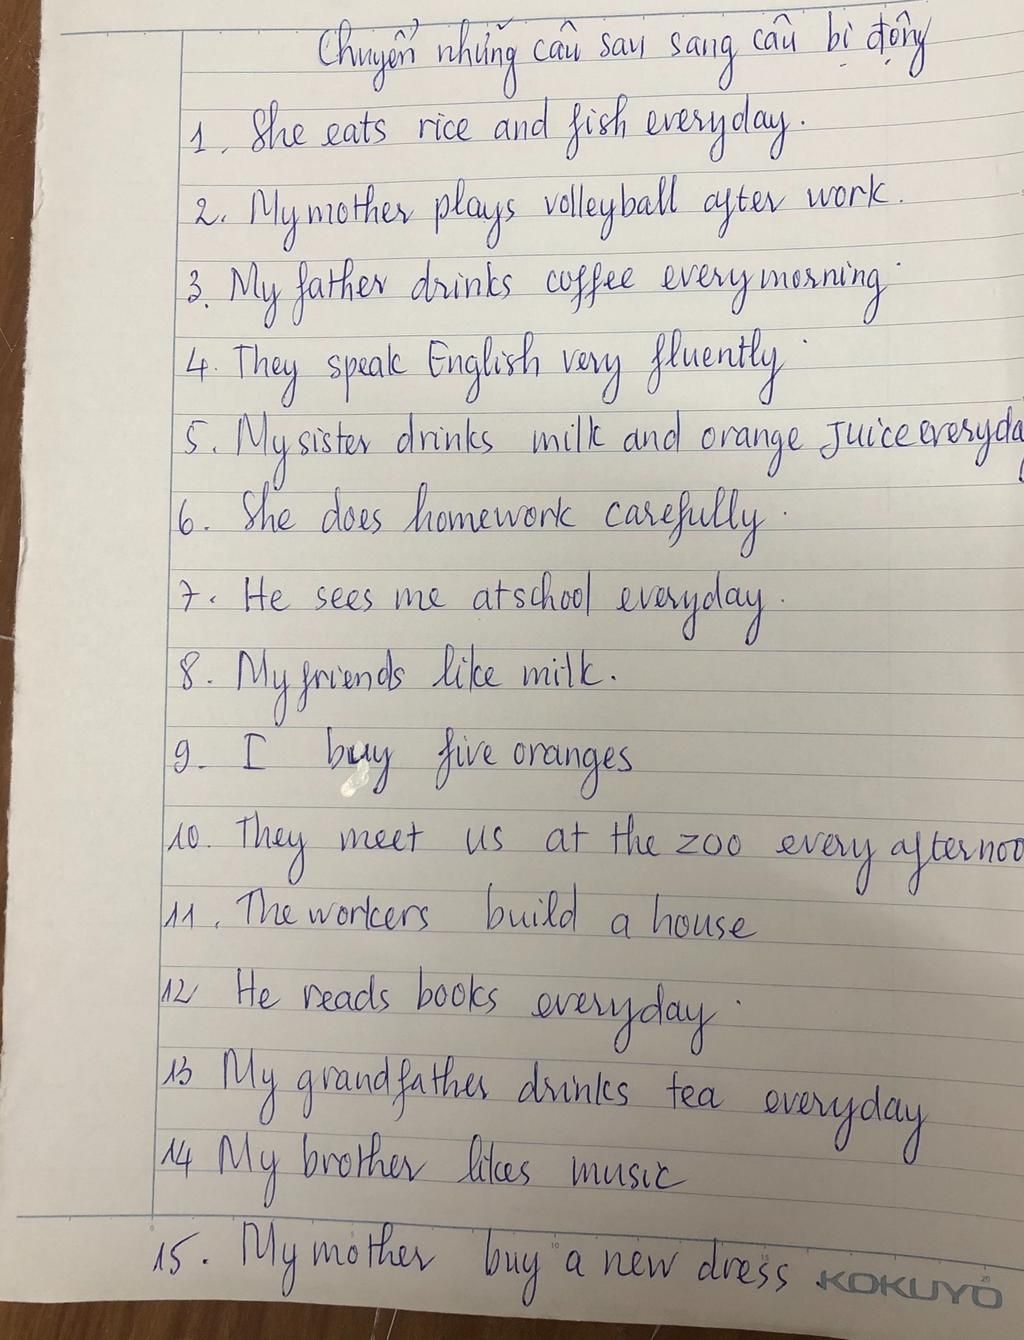 Chuyển những câu sau sang câu bị động
1. She eats rice and fish everyday.
2. My mother plays volleyball after work.
3. My father drinks coffee every morning.
4. They speak English very fluently.
5. My sister drinks milk and orange Juice everyda
6. She does homework carefully.
7. He sees me at school everyday.
8. My friends like milk.
9. I buy five oranges
10. They meet us at the zoo every afternoo
11. The workers build a house
12 He reads books everyday.
13 My grandfather drinks tea everyday
14 My brother likes music
15. My mother buy a new dress
KOKUYO